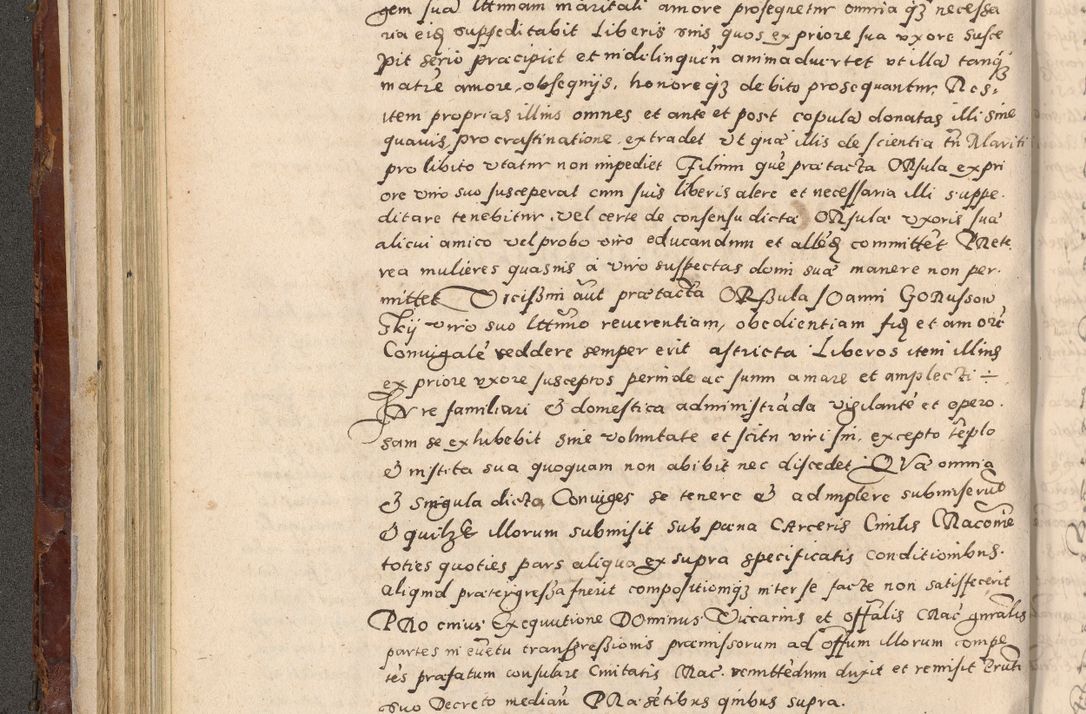 gem sua lttimam maritali amore prosequetur omnia qʒ necessa
ria eiq suppeditabit Liberis suis quos ex priore sua vxore susce
pit serio præcipiet et indelinquen animaduertet vt illa tanq
matre amore, obsequijs, honoreqʒ debito prosequantur, Res,
item proprias illius omnes et ante et post copula donatas illi sine
quauis, procrastinatione, extradet vt qua illis de scientia tn Mariti
pro libito vtatur non impediet Filium que prætacta ORsula ex pri
ore viro suo susceperat cum suis liberis alere et necessaria illi suppe.
ditare tenebitur, vel certe de consensu dicta ORsula vxoris sua
alicui amico vel probo viro educandum et committet PRete.
rea mulieres quasuis a viro suspectas domi sua manere non per.
mittet Vicissim aut prætacta ORssula IOanni GORusson
skij viro suo lttimo reuerentiam, obedientiam fiq et amore
Coniugale reddere semper erit astricta Liberos item illius
ex priore vxore susceptos perinde ac suum amare et amplecti ÷
IN re familiari & domestica administrada vigilante et opero.
sam se exhibebit sine voluntate et scitu viri sui, excepto teplo
& instita sua quoquam non abibit nec discedet QVæ omnia
& singula dicta Coniuges se tenere & adimplere submiserut
& quilʒ illorum submisit sub pœna CArceris Ciuilis CRacouie
toties quoties pars aliqua ex supra specificatis conditionibus.
aliquid prætergressa fuerit compositioniqʒ inter se facte non satisfecerit
PRO cuius Exequutione DOminus Vicarius et offalis CRac gnralis
partes in euetu transgressionis præmissorum ad offum illorum compe
tes præfatum consulare Ciuitatis CRac. remittedum duxit et remisit
suo Decreto median PRæsetibus quibus supra.